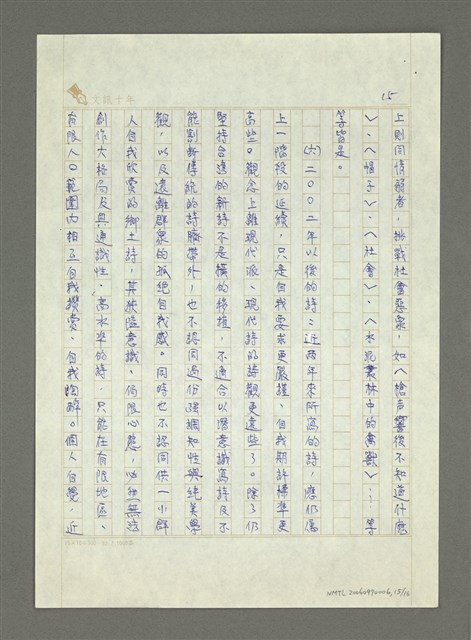 15
文訊十年
上則同情弱者，挑戰社會惡衆，如〈槍声響後不知道什麽
〉、〈帽子〉、〈社會〉、〈水泥叢林中的禽獸〉…等
等皆是。
㈥二〇〇二年以後的詩：近两年來所寫的詩，應仍屬
上一階段的延續，只是自我要求更嚴謹、自我期許標準更
高些。觀念上離現代派、現代詩的詩觀更遠些了。除了仍
堅持台湾的新詩不是橫的移植，不適合以潛意識寫詩及不
能割斷傳統的詩臍帶外，也不認同過份強調知性與純美學
觀，以及遠離群衆的孤絕自我感。同時也不認同供一小群
人自我欣賞的鄉土詩，其狹隘意識、侷限心態，必然無法
創作大格局及具遠識性、高水準的詩，只能在有限地區、
有限人口範圍內相互自我讚賞、自我陶醉。個人自覺，近
NMTL 20060970006, 15/16